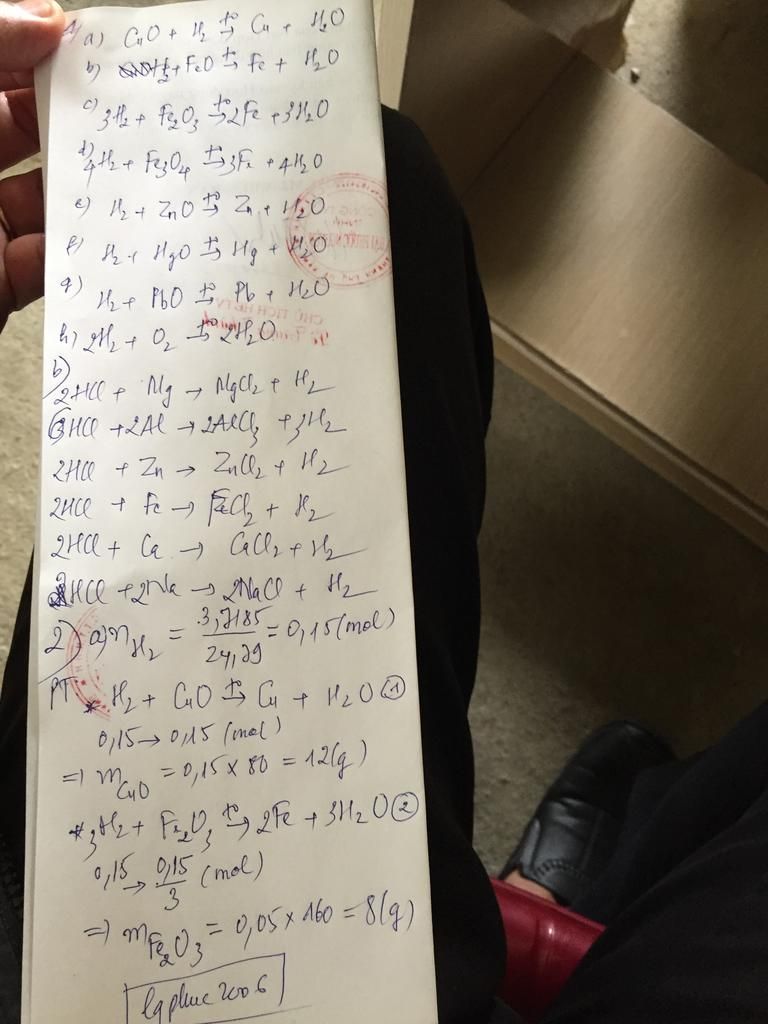 1) a) CuO + H₂ →(t°) Cu + H₂O
b) H₂ + FeO →(t°) Fe + H₂O
c) 3H₂ + Fe₂O₃ →(t°) 2Fe + 3H₂O
d) 4H₂ + Fe₃O₄ →(t°) 3Fe + 4H₂O
e) H₂ + ZnO →(t°) Zn + H₂O
f) H₂ + HgO →(t°) Hg + H₂O
g) H₂ + PbO →(t°) Pb + H₂O
CHỦ TỊCH HĐTV
h) 2H₂ + O₂ →(t°) 2H₂O
b)
2HCl + Mg → MgCl₂ + H₂
6HCl + 2Al → 2AlCl₃ + 3H₂
2HCl + Zn → ZnCl₂ + H₂
2HCl + Fe → FeCl₂ + H₂
2HCl + Ca → CaCl₂ + H₂
2HCl + 2Na → 2NaCl + H₂
2) a) n_H₂ = 3,7185/24,79 = 0,15 (mol)
PT * H₂ + CuO →(t°) Cu + H₂O ①
0,15 → 0,15 (mol)
⇒ m_CuO = 0,15 × 80 = 12(g)
* 3H₂ + Fe₂O₃ →(t°) 2Fe + 3H₂O ②
0,15 → 0,15/3 (mol)
⇒ m_Fe₂O₃ = 0,05 × 160 = 8(g)
lgphuc2006